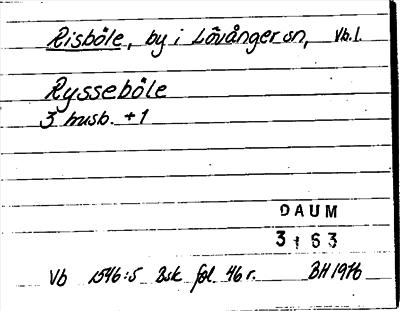 Risböle, by i Lövånger sn, Vb.l.
Rysseböle
3 husb. +1
DAUM
3163
Vb 1546:5 Bsk fol. 46 r. BH 1976